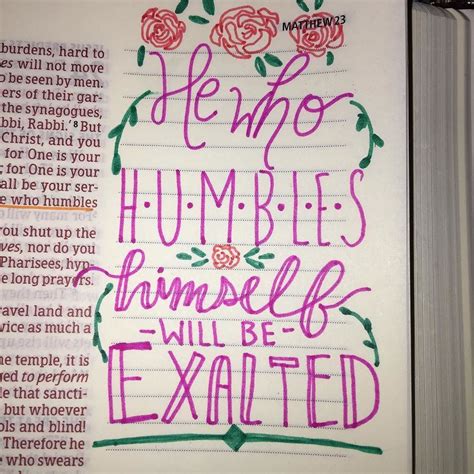 MATTHEW 23
burdens, hard to
es will not move
to be seen by men.
ers of their gar-
the synagogues,
bbi, Rabbi.' 8 But
Christ, and you
for One is your
for One is your
all be your ser-
e who humbles
you shut up the
ves, nor do you
Pharisees, hyp
e long prayers.
ravel land and
vice as much a
he temple, it is
ged to perform
le that sancti-
but whoever
ols and blind!
Therefore he
who swears
He who
H·U·M·B·L·E·S
himself
-WILL BE-
EXALTED